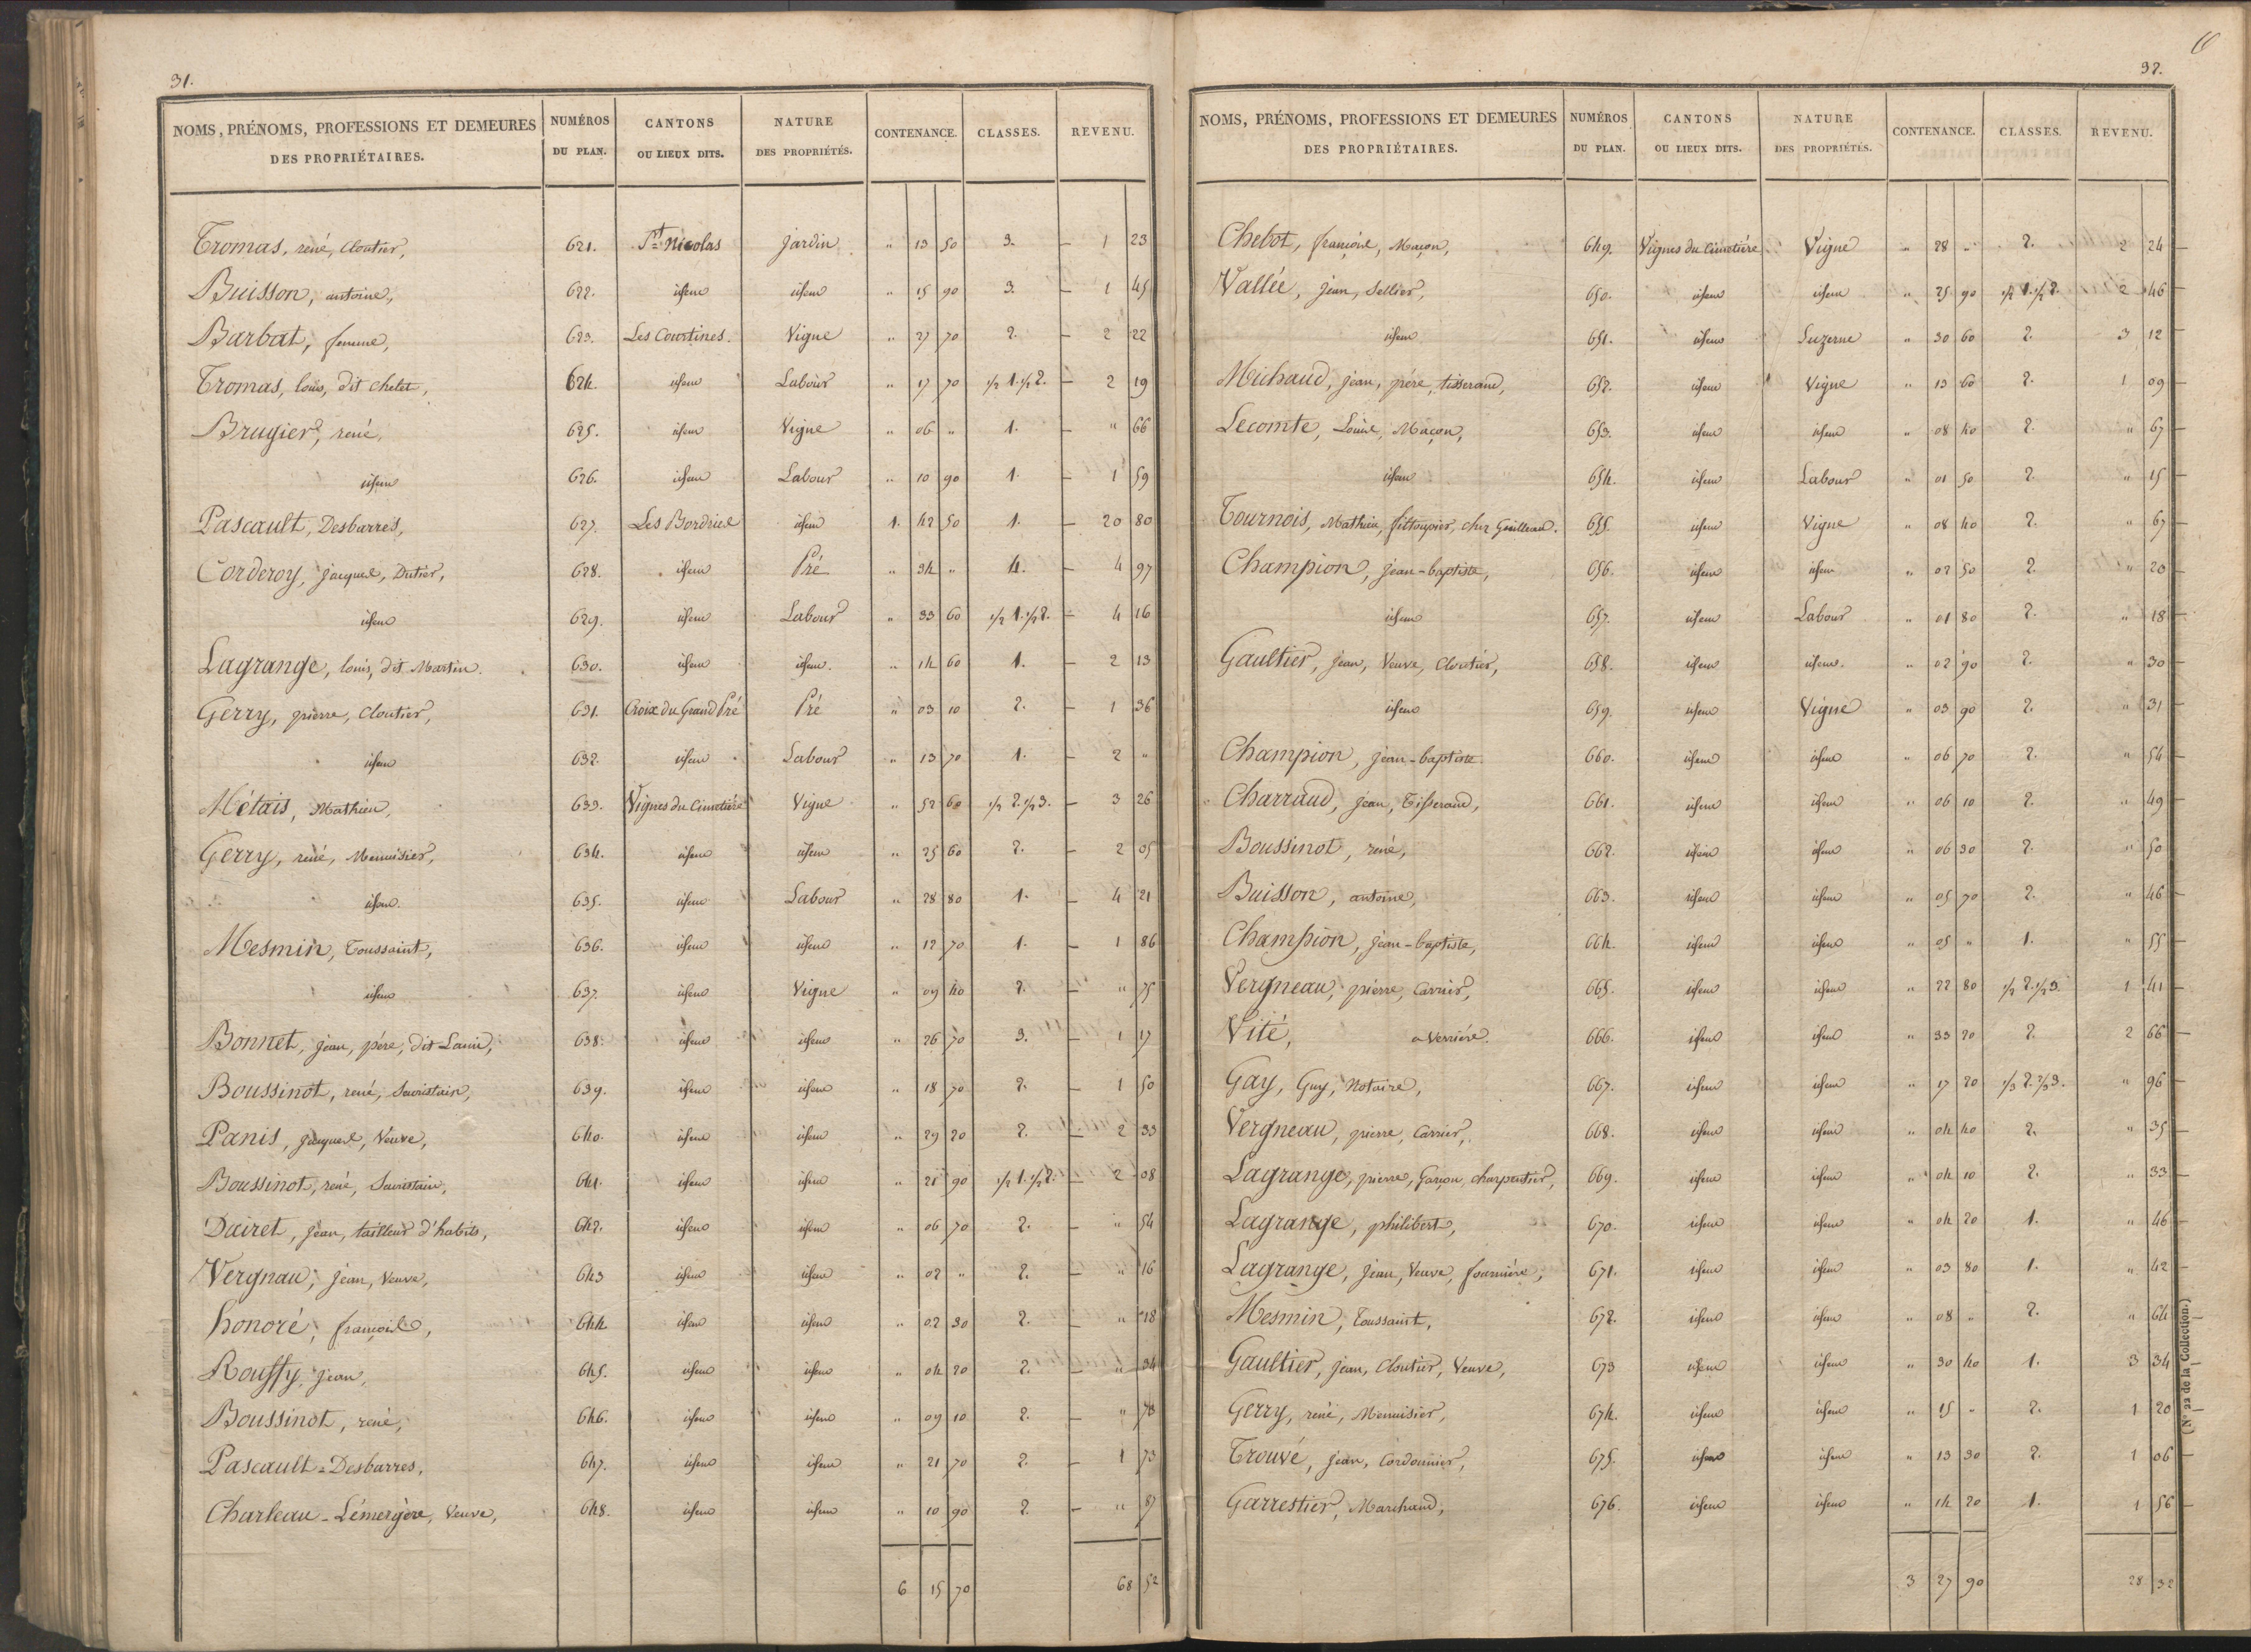 31.
NOMS, PRÉNOMS, PROFESSIONS ET DEMEURES DES PROPRIÉTAIRES. NUMÉROS DU PLAN. CANTONS OU LIEUX DITS. NATURE DES PROPRIÉTÉS. CONTENANCE. CLASSES. REVENU.
Tromas, rené, Cloutier, 621. St Nicolas jardin " 13 50 3. 1 23
Buisson, antoine, 622. idem idem " 15 90 3. 1 45
Barbat, femme, 623. Les Courtines. Vigne " 27 70 2. 2 22
Tromas, louis, dit chelet, 624. idem Labour " 17 70 1/2 1. 1/2 2. 2 19
Brugier, rené, 625. idem Vigne " 06 " 1. " 66
idem 626. idem Labour " 10 90 1. 1 59
Pascault, Desbarres, 627. Les Bordries idem 1. 42 50 1. 20 80
Corderoy, jacques, Dutier, 628. idem Pré " 34 " 4. 4 97
idem 629. idem Labour " 33 60 1/2 1. 1/2 2. 4 16
Lagrange, louis, dit Martin. 630. idem idem. " 14 60 1. 2 13
Gerry, pierre, Cloutier, 631. Croix du Grand Pré Pré " 03 10 2. 1 36
idem 632. idem Labour " 13 70 1. 2 "
Métais, Mathieu, 633. Vignes du Cimetière Vigne " 52 60 1/2 2. 1/2 3. 3 26
Gerry, rené, Menuisier, 634. idem idem " 25 60 2. 2 05
idem. 635. idem Labour " 28 80 1. 4 21
Mesmin, Toussaint, 636. idem idem " 12 70 1. 1 86
idem 637. idem Vigne " 09 40 2. " 75
Bonnet, jean, père, dit Lauin, 638. idem idem " 26 70 3. 1 17
Boussinot, rené, Sacristain, 639. idem idem " 18 70 2. 1 50
Panis, jacques, Veuve, 640. idem idem " 29 20 2. 2 33
Boussinot, rené, Sacristain, 641. idem idem " 21 90 1/2 1. 1/2 2. 2 08
Dairet, jean, tailleur d'habits, 642. idem idem " 06 70 2. " 54
Vergnau, jean, Veuve, 643 idem idem " 02 " 2. " 16
honoré, françois, 644 idem idem " 02 30 2. " 18
Rouffy, jean, 645. idem idem " 04 20 2. " 34
Boussinot, rené, 646. idem idem " 09 10 2. " 73
Pascault-Desbarres, 647. idem idem " 21 70 2. 1 73
Charleau-Lémergère, Veuve, 648. idem idem " 10 90 2. " 87
6 15 70 68 52
32.
NOMS, PRÉNOMS, PROFESSIONS ET DEMEURES DES PROPRIÉTAIRES. NUMÉROS DU PLAN. CANTONS OU LIEUX DITS. NATURE DES PROPRIÉTÉS. CONTENANCE. CLASSES. REVENU.
Chebot, françois, Maçon, 649. Vignes du Cimetière Vigne " 28 " 2. 2 24
Vallée, jean, Sellier, 650. idem idem " 25 90 1/2 1. 1/2 2. 2 46
idem 651. idem Luzerne " 30 60 2. 3 12
Michaud, jean, père, tisserand, 652. idem Vigne " 13 60 2. 1 09
Lecomte, Louis, Maçon, 653. idem idem " 08 40 2. " 67
idem 654. idem Labour " 01 50 2. " 15
Tournois, Mathieu, filtoupier, chez Guilleau. 655. idem Vigne " 08 40 2. " 67
Champion, jean-baptiste, 656. idem idem " 02 50 2. " 20
idem 657. idem Labour " 01 80 2. " 18
Gaultier, jean, Veuve, Cloutier, 658. idem idem. " 02 90 2. " 30
idem 659. idem Vigne " 03 90 2. " 31
Champion, jean-baptiste 660. idem idem " 06 70 2. " 54
Charraud, jean, Tisserand, 661. idem idem " 06 10 2. " 49
Boussinot, rené, 662. idem idem " 06 30 2. " 50
Buisson, antoine, 663. idem idem " 05 70 2. " 46
Champion, jean-baptiste, 664. idem idem " 05 " 1. " 55
Vergneau, pierre, Carrier, 665. idem idem " 22 80 1/2 2. 1/2 3. 1 41
Vité, a Verrière. 666. idem idem " 33 20 2. 2 66
Gay, Guy, Notaire, 667. idem idem " 17 20 1/3 2. 2/3 3. " 96
Vergneau, pierre, Carrier, 668. idem idem " 04 40 2. " 35
Lagrange, pierre, Garçon, charpentier, 669. idem idem " 04 10 2. " 33
Lagrange, philibert, 670. idem idem " 04 20 1. " 46
Lagrange, jean, Veuve, fournière, 671. idem idem " 03 80 1. " 42
Mesmin, Toussaint, 672. idem idem " 08 " 2. " 64
Gaultier, jean, Cloutier, Veuve, 673 idem idem " 30 40 1. 3 34
Gerry, rené, Menuisier, 674. idem idem " 15 " 2. 1 20
Trouvé, jean, Cordonnier, 675. idem idem " 13 30 2. 1 06
Garrestier, Marchand, 676. idem idem " 14 20 1. 1 56
3 27 90 28 32
(N° 22 de la Collection.)